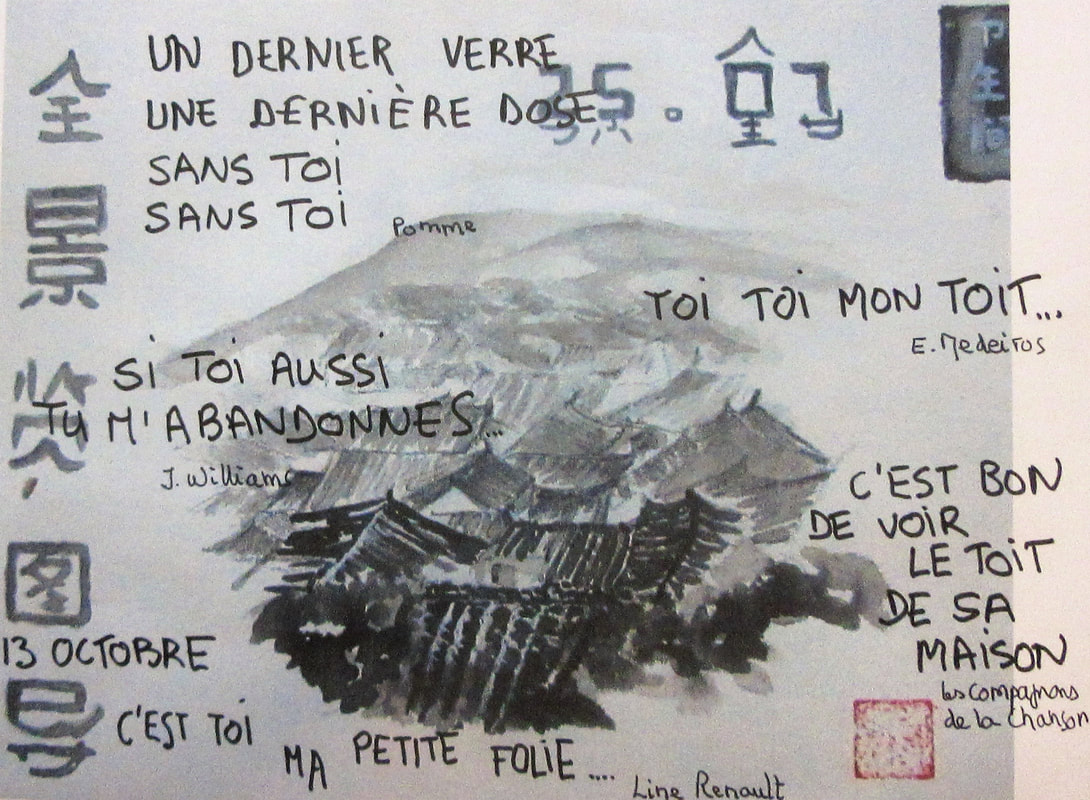 UN DERNIER VERRE
UNE DERNIÈRE DOSE
SANS TOI
SANS TOI
Pomme
TOI TOI MON TOIT...
E. Medeiros
SI TOI AUSSI
TU M'ABANDONNES...
J. Williams
C'EST BON
DE VOIR
LE TOIT
DE SA
MAISON
les Compagnons
de la Chanson
13 OCTOBRE
C'EST TOI
MA PETITE FOLIE....
Line Renault
全
景
图